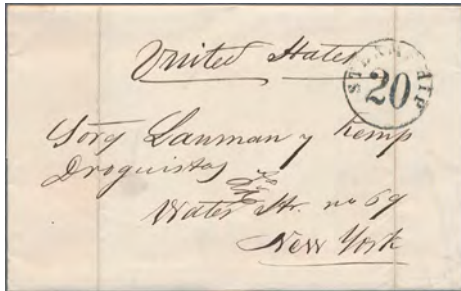 United States
STEAMSHIP
20
Sorg Lanman y Kemp
Droguistas
Water Str. no 69
New York